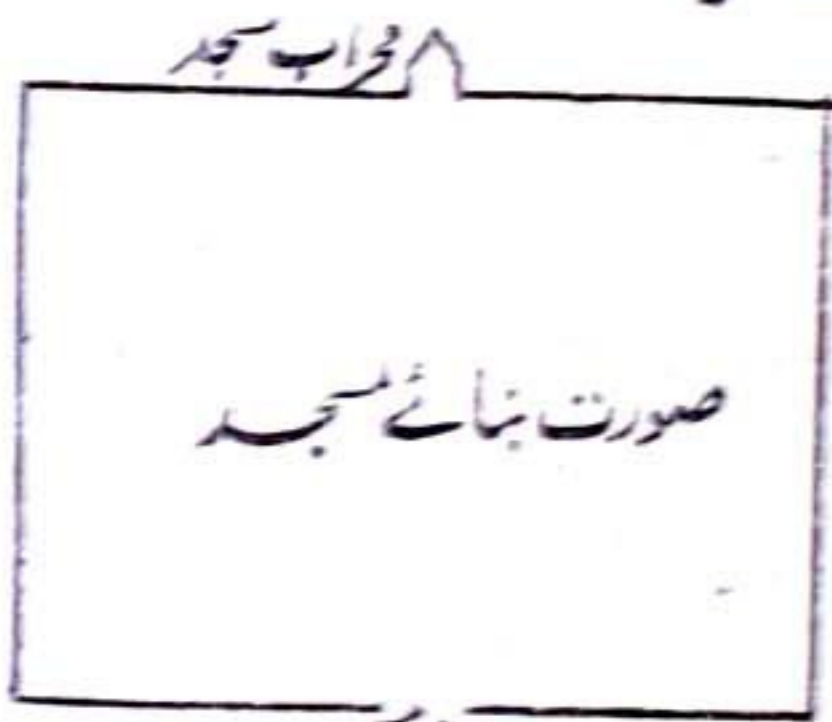 محراب مسجد
صورت بنائے مسجد